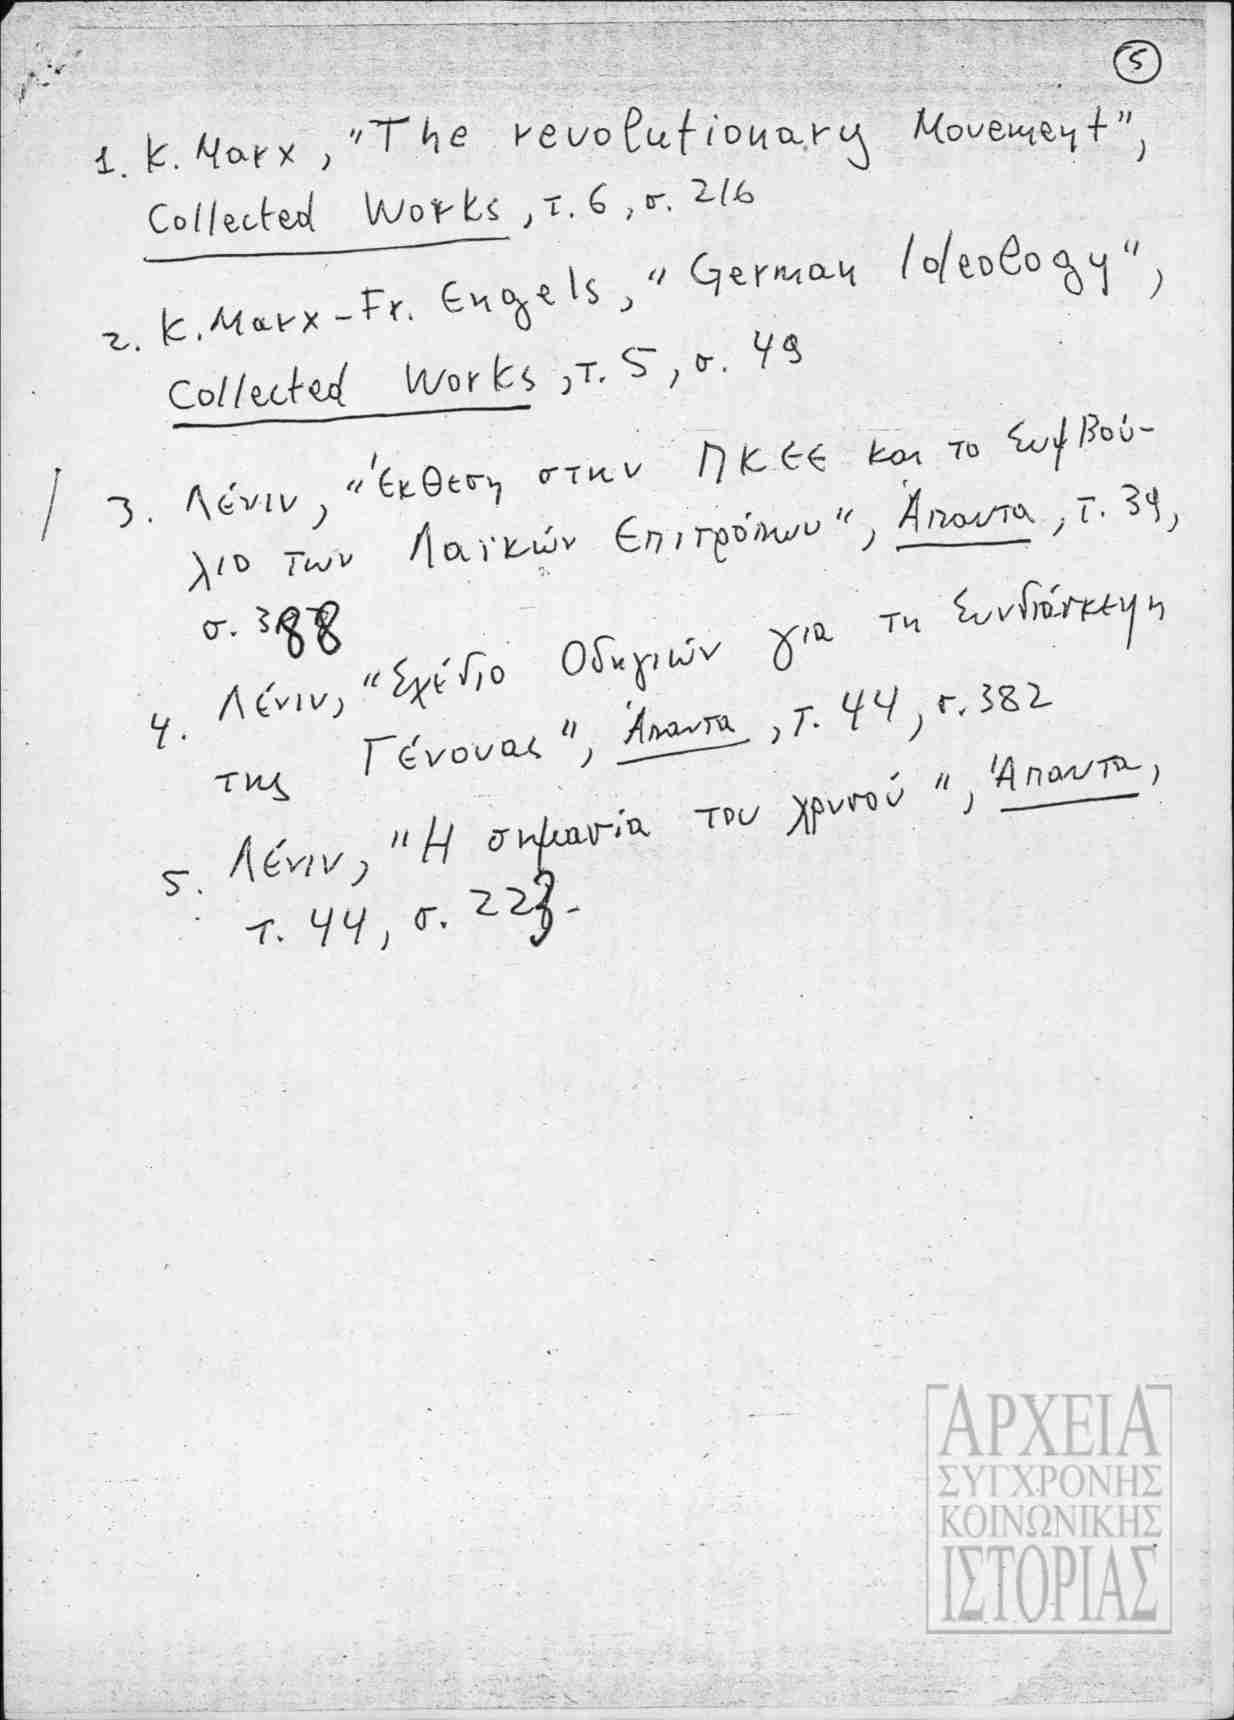 5
1. K. Marx, "The revolutionary Movement",
Collected Works, τ. 6, σ. 216
2. K. Marx - Fr. Engels, "German Ideology",
Collected Works, τ. 5, σ. 49
3. Λένιν, "Έκθεση στην ΠΚΕΕ και το Συμβού-
λιο των Λαϊκών Επιτρόπων", Άπαντα, τ. 39,
σ.
4. Λένιν, "Σχέδιο Οδηγιών για τη Συνδιάσκεψη
της Γένουας", Άπαντα, τ. 44, σ. 382
5. Λένιν, "Η σημασία του χρυσού", Άπαντα,
τ. 44, σ.
ΑΡΧΕΙΑ
ΣΥΓΧΡΟΝΗΣ
ΚΟΙΝΩΝΙΚΗΣ
ΙΣΤΟΡΙΑΣ